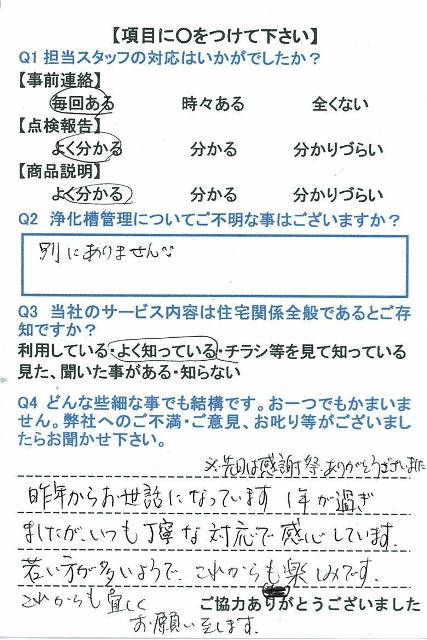 【項目に〇をつけて下さい】
Q1 担当スタッフの対応はいかがでしたか？
【事前連絡】
毎回ある 時々ある 全くない
【点検報告】
よく分かる 分かる 分かりづらい
【商品説明】
よく分かる 分かる 分かりづらい
Q2 浄化槽管理についてご不明な事はございますか？
別にありません
Q3 当社のサービス内容は住宅関係全般であるとご存
知ですか？
利用している・よく知っている・チラシ等を見て知っている
見た、聞いた事がある・知らない
Q4 どんな些細な事でも結構です。お一つでもかまいま
せん。弊社へのご不満・ご意見、お叱り等がございまし
たらお聞かせ下さい。
※先日は感謝祭ありがとうございました
昨年からお世話になっています 1年が過ぎ
ましたが、いつも丁寧な対応で感心しています。
若い方が多いようで、これからも楽しみです。
これからも宜しく
お願い致します。
ご協力ありがとうございました